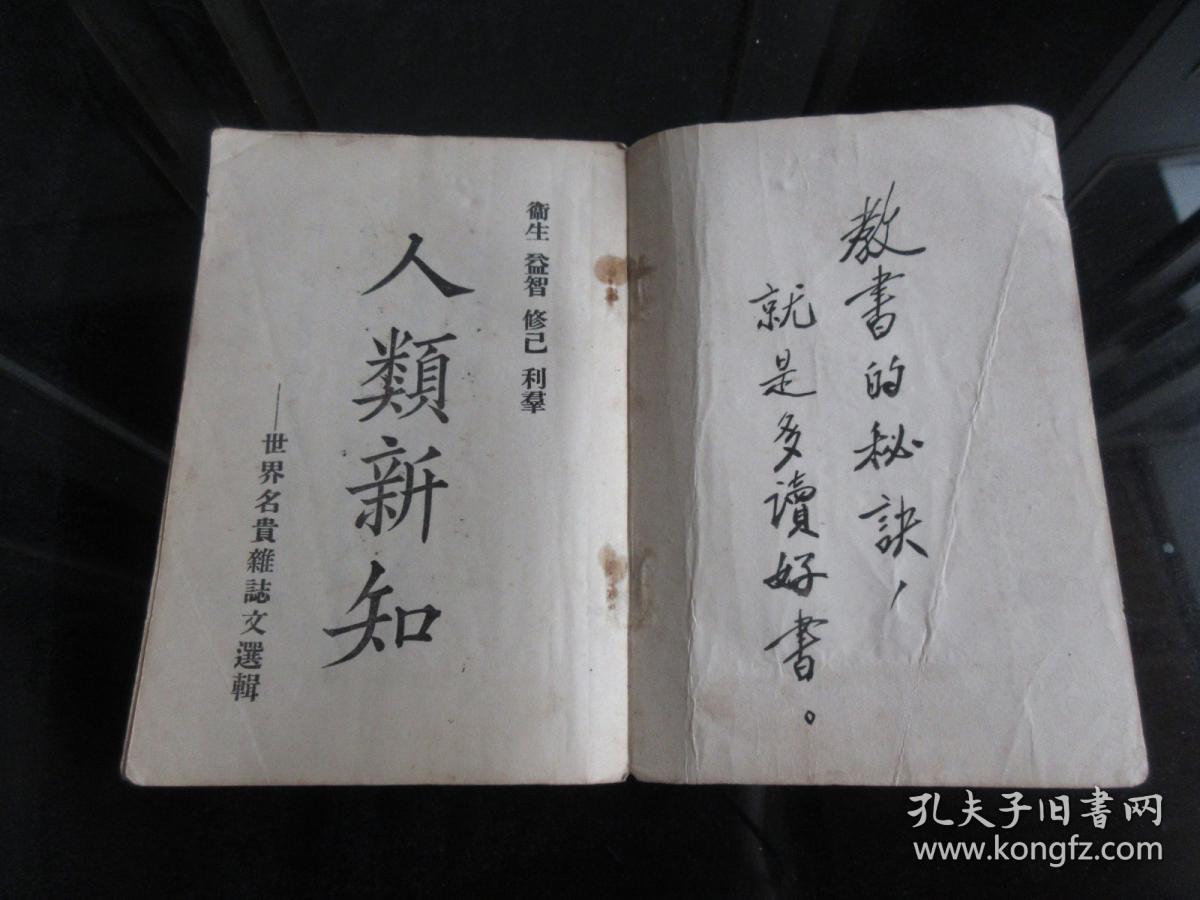 教書的秘訣，
就是多讀好書。
衞生 益智 修己 利羣
人類新知
——世界名貴雜誌文選輯
孔夫子旧书网
www.kongfz.com